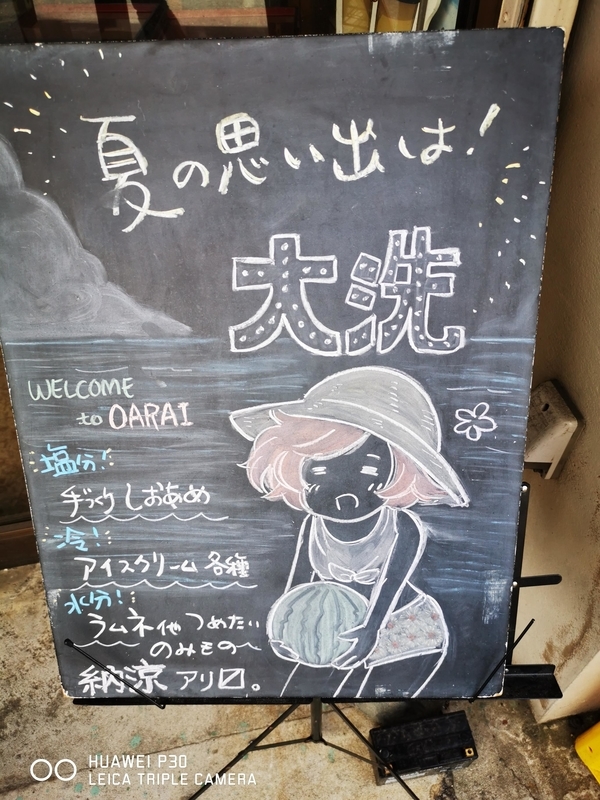 夏の思い出は!
大洗
WELCOME
to OARAI
塩分!
手づくりしおあめ
冷!
アイスクリーム 各種
水分!
ラムネ他 つめたい
のみもの
納涼 アリ〼。
HUAWEI P30
LEICA TRIPLE CAMERA